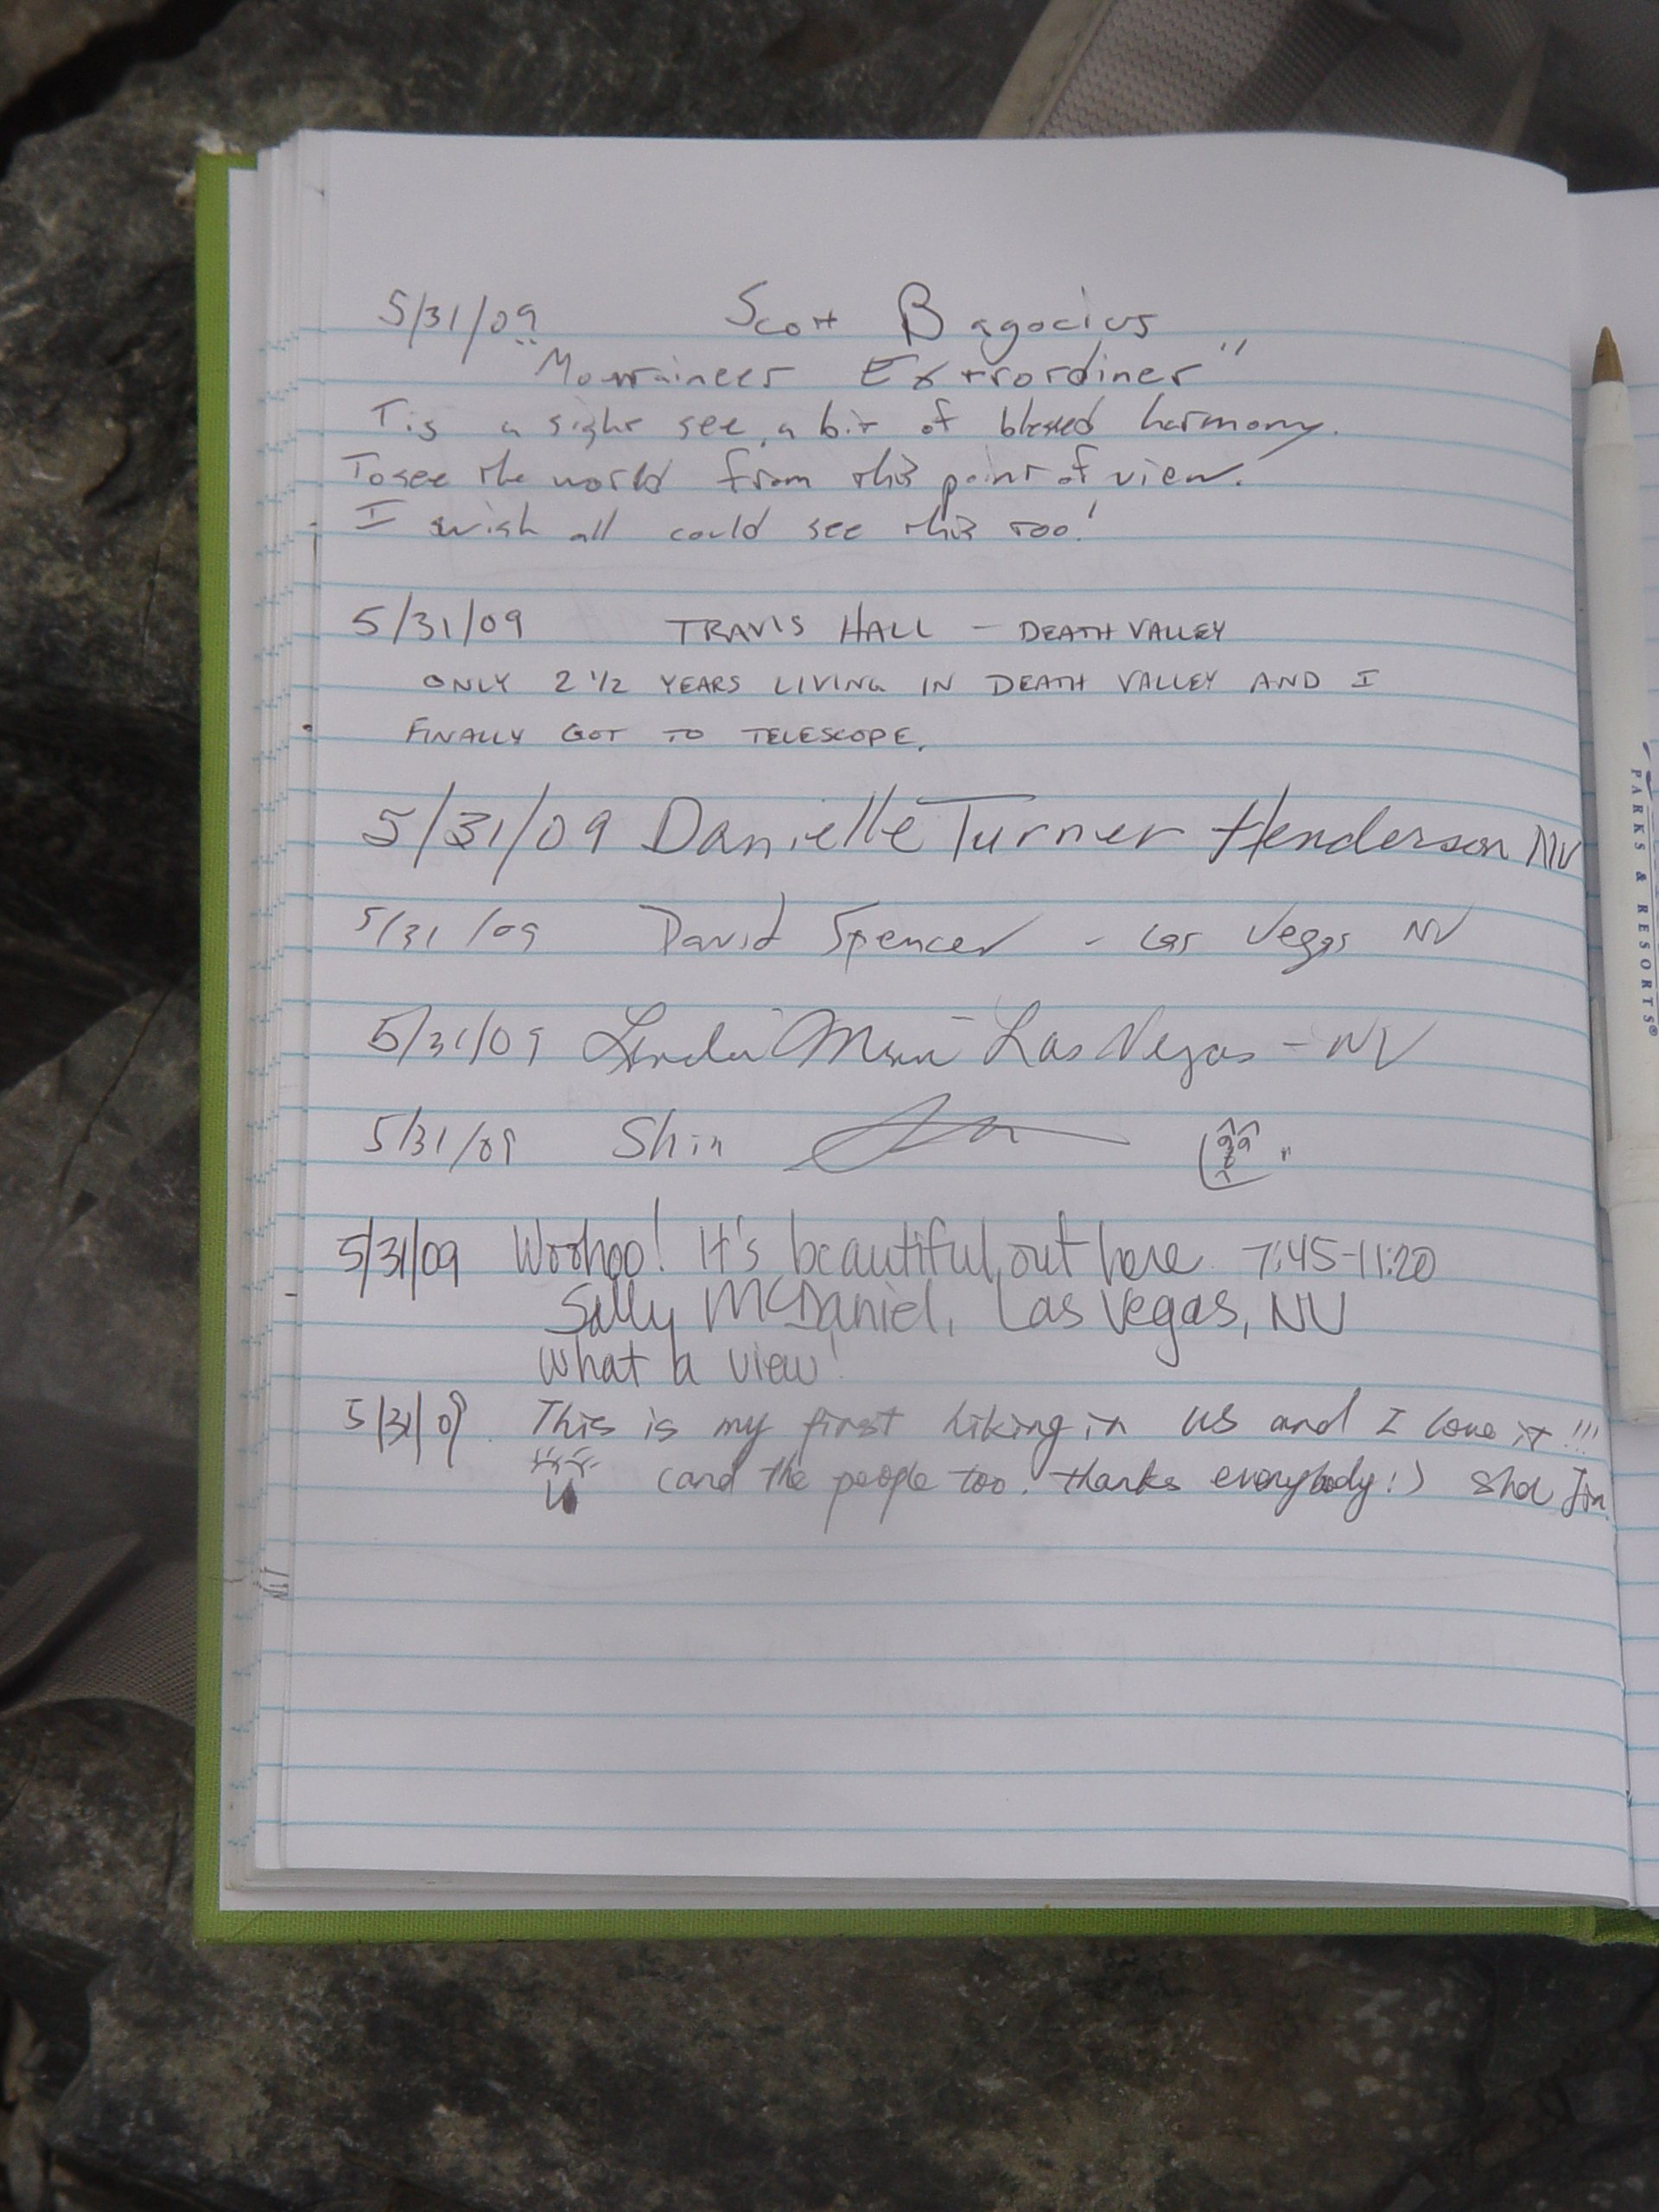 5/31/09 Scott Bagocius
"Mountaineer Extrordiner"
Tis a sight see, a bit of blessed harmony.
To see the world from this point of view.
I wish all could see this too!
5/31/09 TRAVIS HALL - DEATH VALLEY
ONLY 2 1/2 YEARS LIVING IN DEATH VALLEY AND I
FINALLY GOT TO TELESCOPE.
5/31/09 Danielle Turner Henderson NV
5/31/09 David Spencer - Las Vegas NV
5/31/09 Las Vegas - NV
5/31/09 Shin
5/31/09 Woohoo! It's beautiful out here 7:45-11:20
Sally McDaniel, Las Vegas, NV
What a view!
5/31/09 This is my first hiking in US and I love it!!!
(and the people too. thanks everybody!)
PARKS & RESORTS®